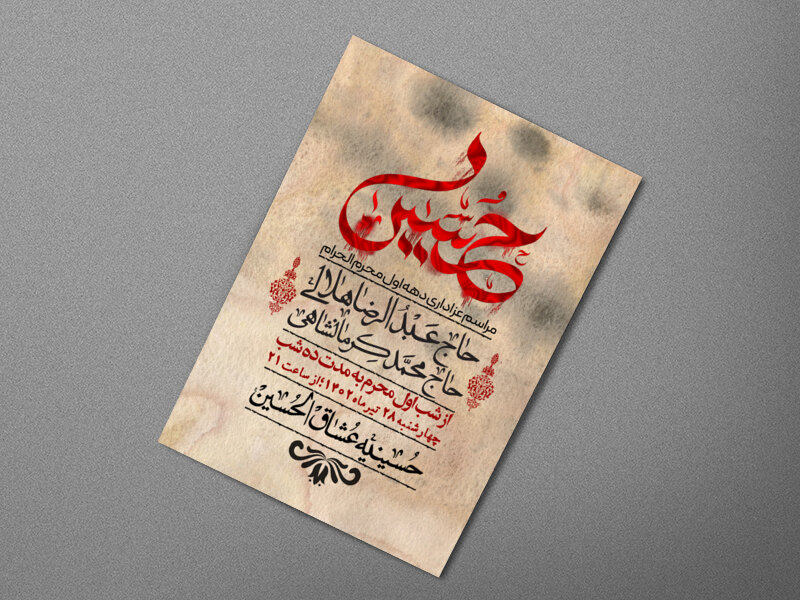 حسین
مراسم عزاداری دهه اول محرم الحرام
حاج عَبْدُالرضا هلالی
حاج محمَّد کِرمانشاهی
از شب اول محرم به مدت ده شب
چهارشنبه ۲۸ تیرماه ۱۴۰۲؛ از ساعت ۲۱
حُسینیه عُشاقْ الحُسین